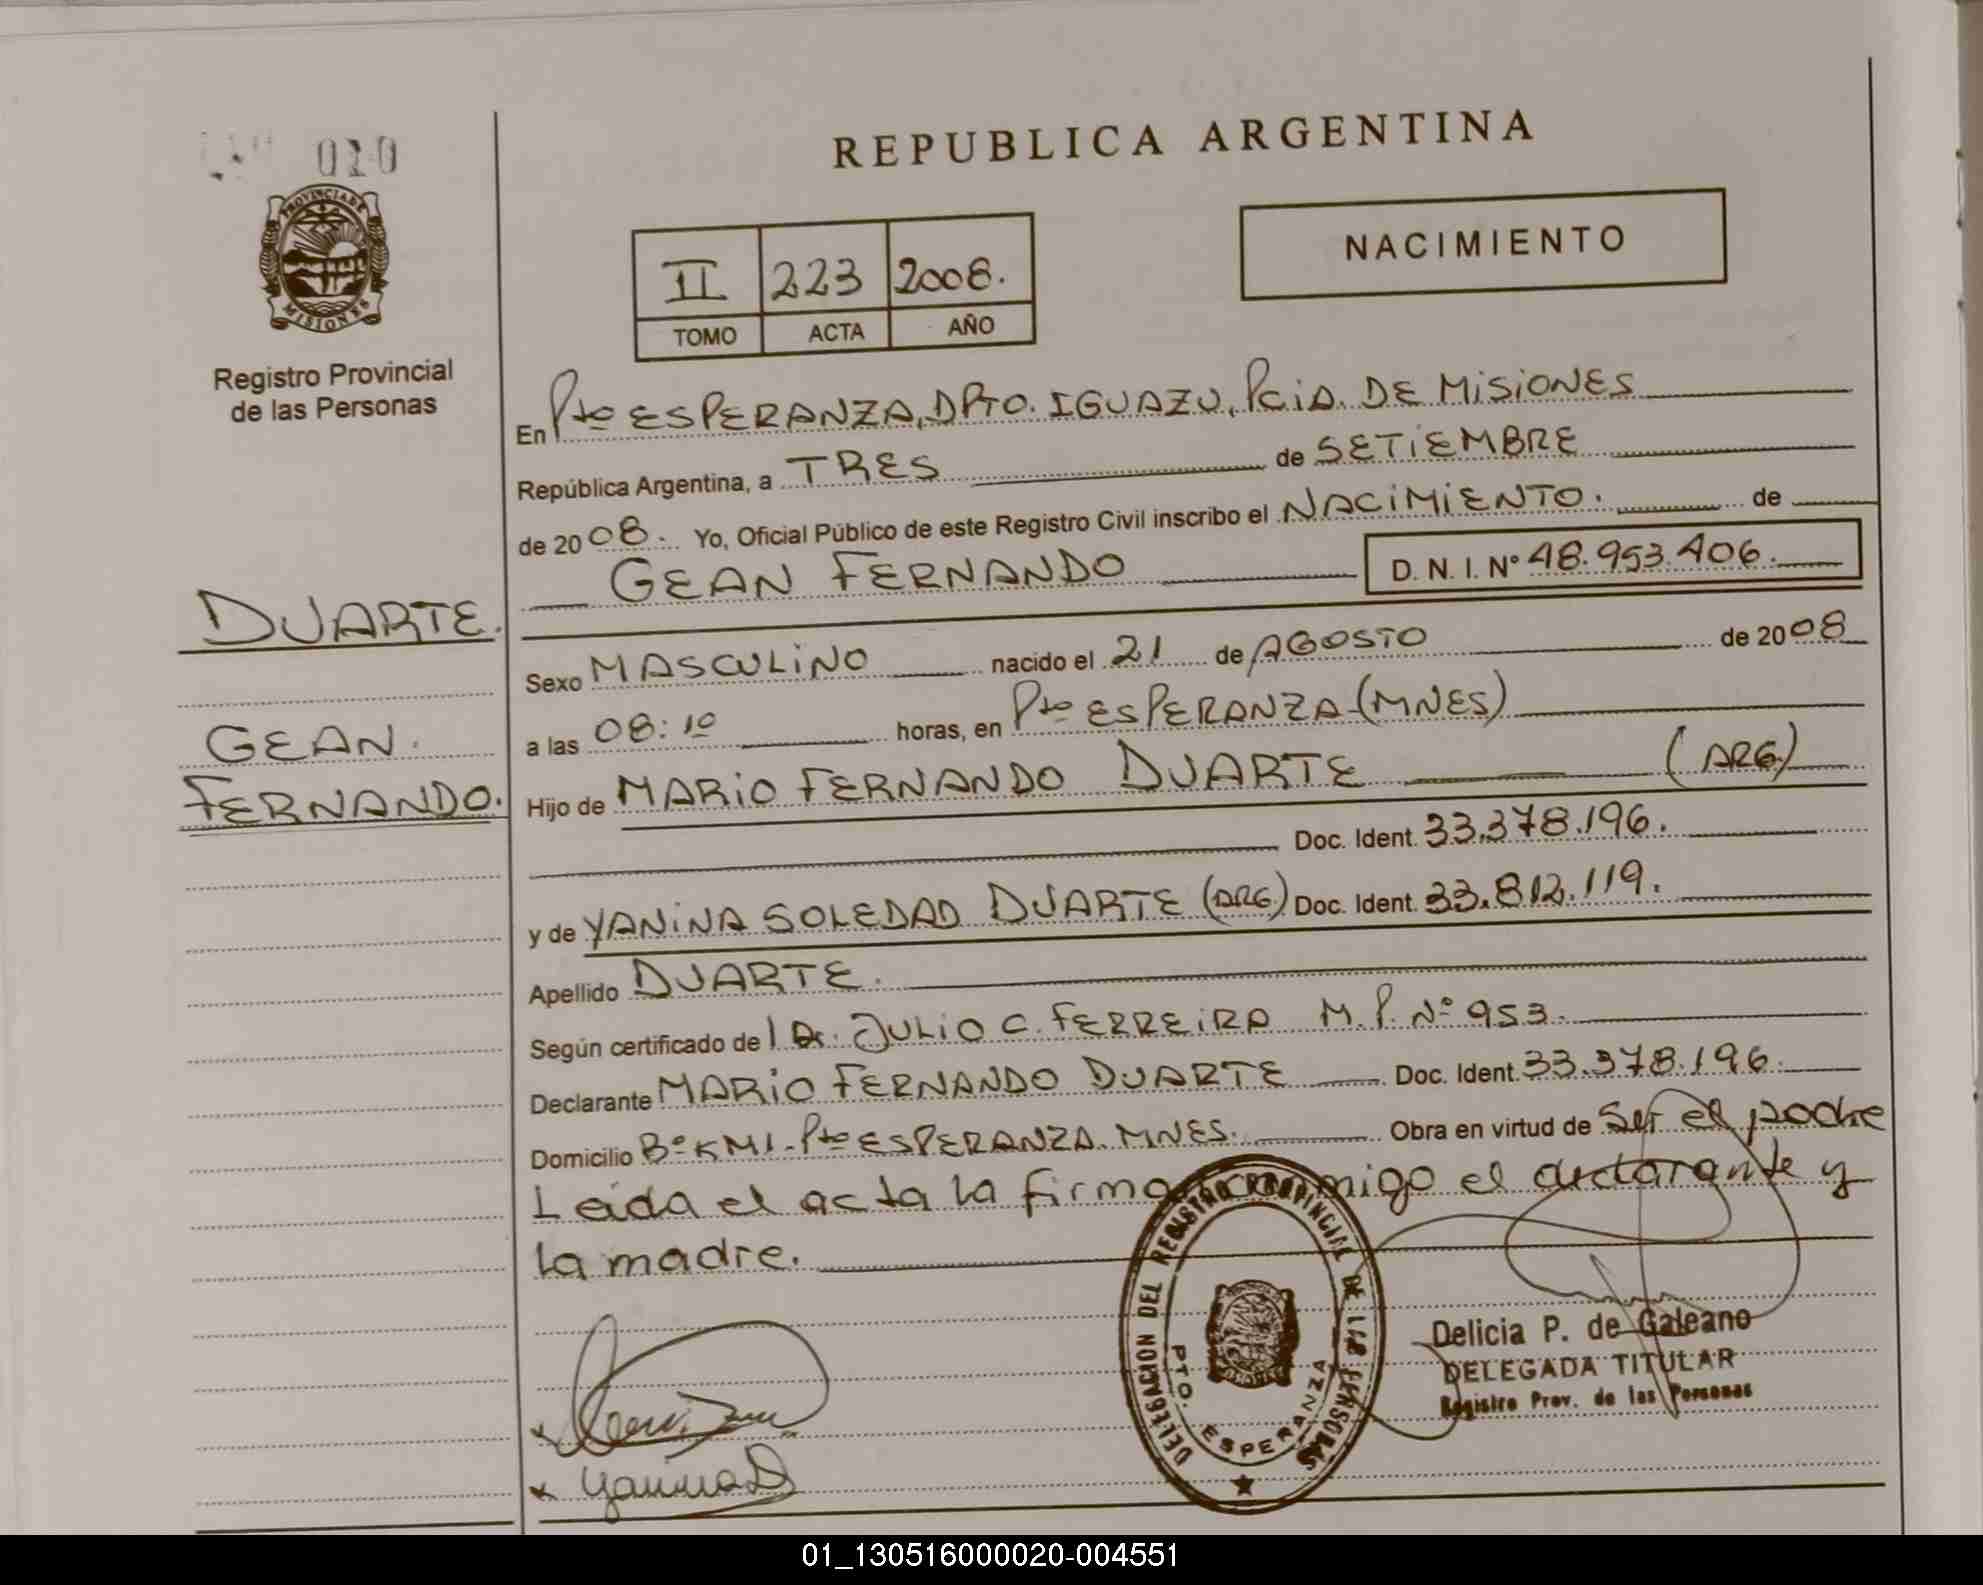 020
PROVINCIA DE
MISIONES
Registro Provincial
de las Personas
DUARTE.
GEAN.
FERNANDO.
REPUBLICA ARGENTINA
NACIMIENTO
II 223 2008.
TOMO ACTA AÑO
En Pto ESPERANZA, DPTO. IGUAZU, PciA. DE MiSiONES
República Argentina, a TRES de SETiEMBRE
de 2008. Yo, Oficial Público de este Registro Civil inscribo el NACiMiENTO. de
GEAN FERNANDO D. N. I. Nº 48.953.406.
Sexo MASCULiNO nacido el 21 de AGOSTO de 2008
a las 08:10 horas, en Pto ESPERANZA-(MNES)
Hijo de MARiO FERNANDO DUARTE (ARG.)
Doc. Ident. 33.378.196.
y de YANiNA SOLEDAD DUARTE (ARG) Doc. Ident. 33.812.119.
Apellido DUARTE.
Según certificado de l Dr. JULiO C. FERREiRA M.P. Nº 953.
Declarante MARiO FERNANDO DUARTE Doc. Ident. 33.378.196.
Domicilio Bº KM1-Pto ESPERANZA. MNES. Obra en virtud de Ser el padre
Leida el acta la firma conmigo el declarante y
la madre.
Yanina D
DELEGACION DEL REGISTRO PROVINCIAL DE LAS PERSONAS
PTO. ESPERANZA
Delicia P. de Galeano
DELEGADA TITULAR
Registro Prov. de las Personas
01_130516000020-004551